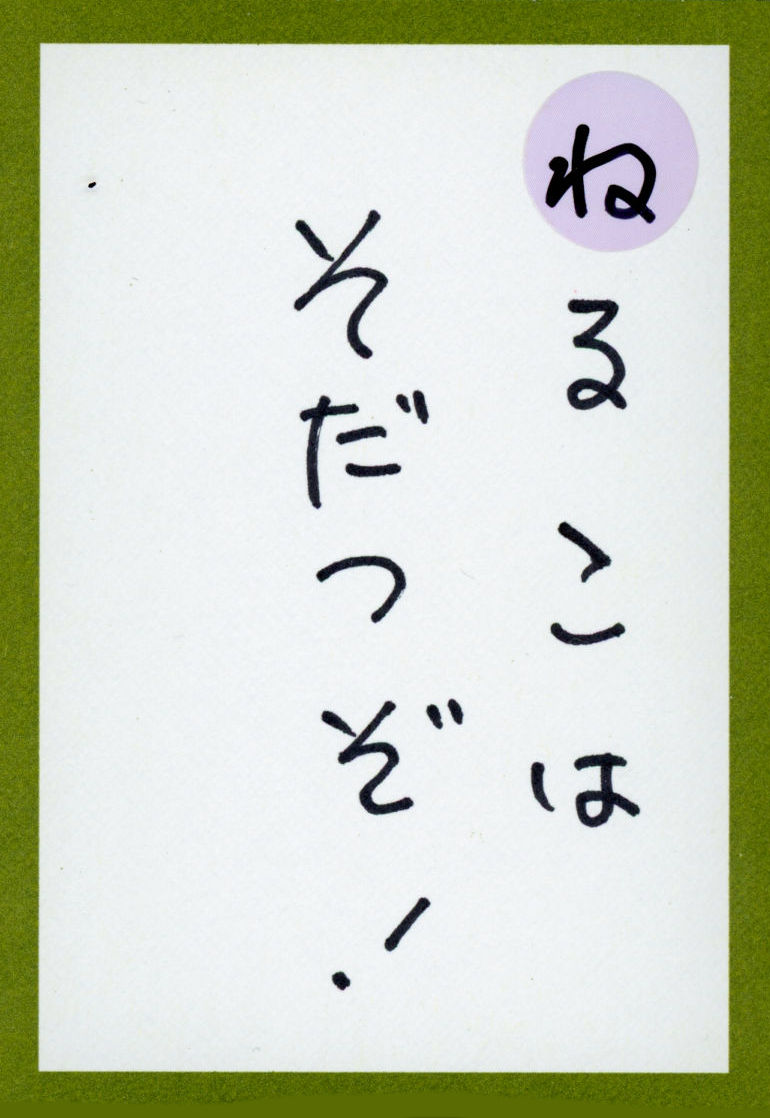 ねるこは
そだつぞ!